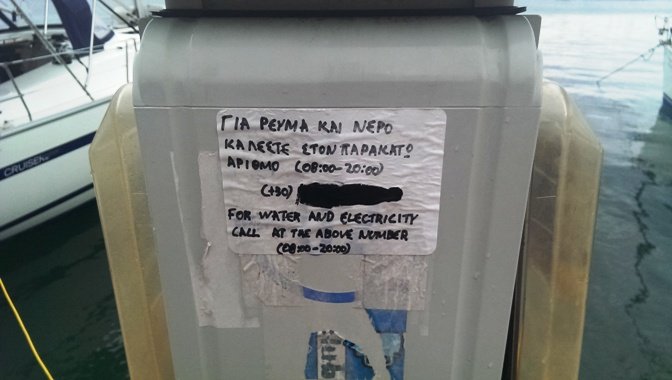 ΓΙΑ ΡΕΥΜΑ ΚΑΙ ΝΕΡΟ
ΚΑΛΕΣΤΕ ΣΤΟΝ ΠΑΡΑΚΑΤΩ
ΑΡΙΘΜΟ (08:00-20:00)
(+30)
FOR WATER AND ELECTRICITY
CALL AT THE ABOVE NUMBER
(08:00-20:00)
CRUISER